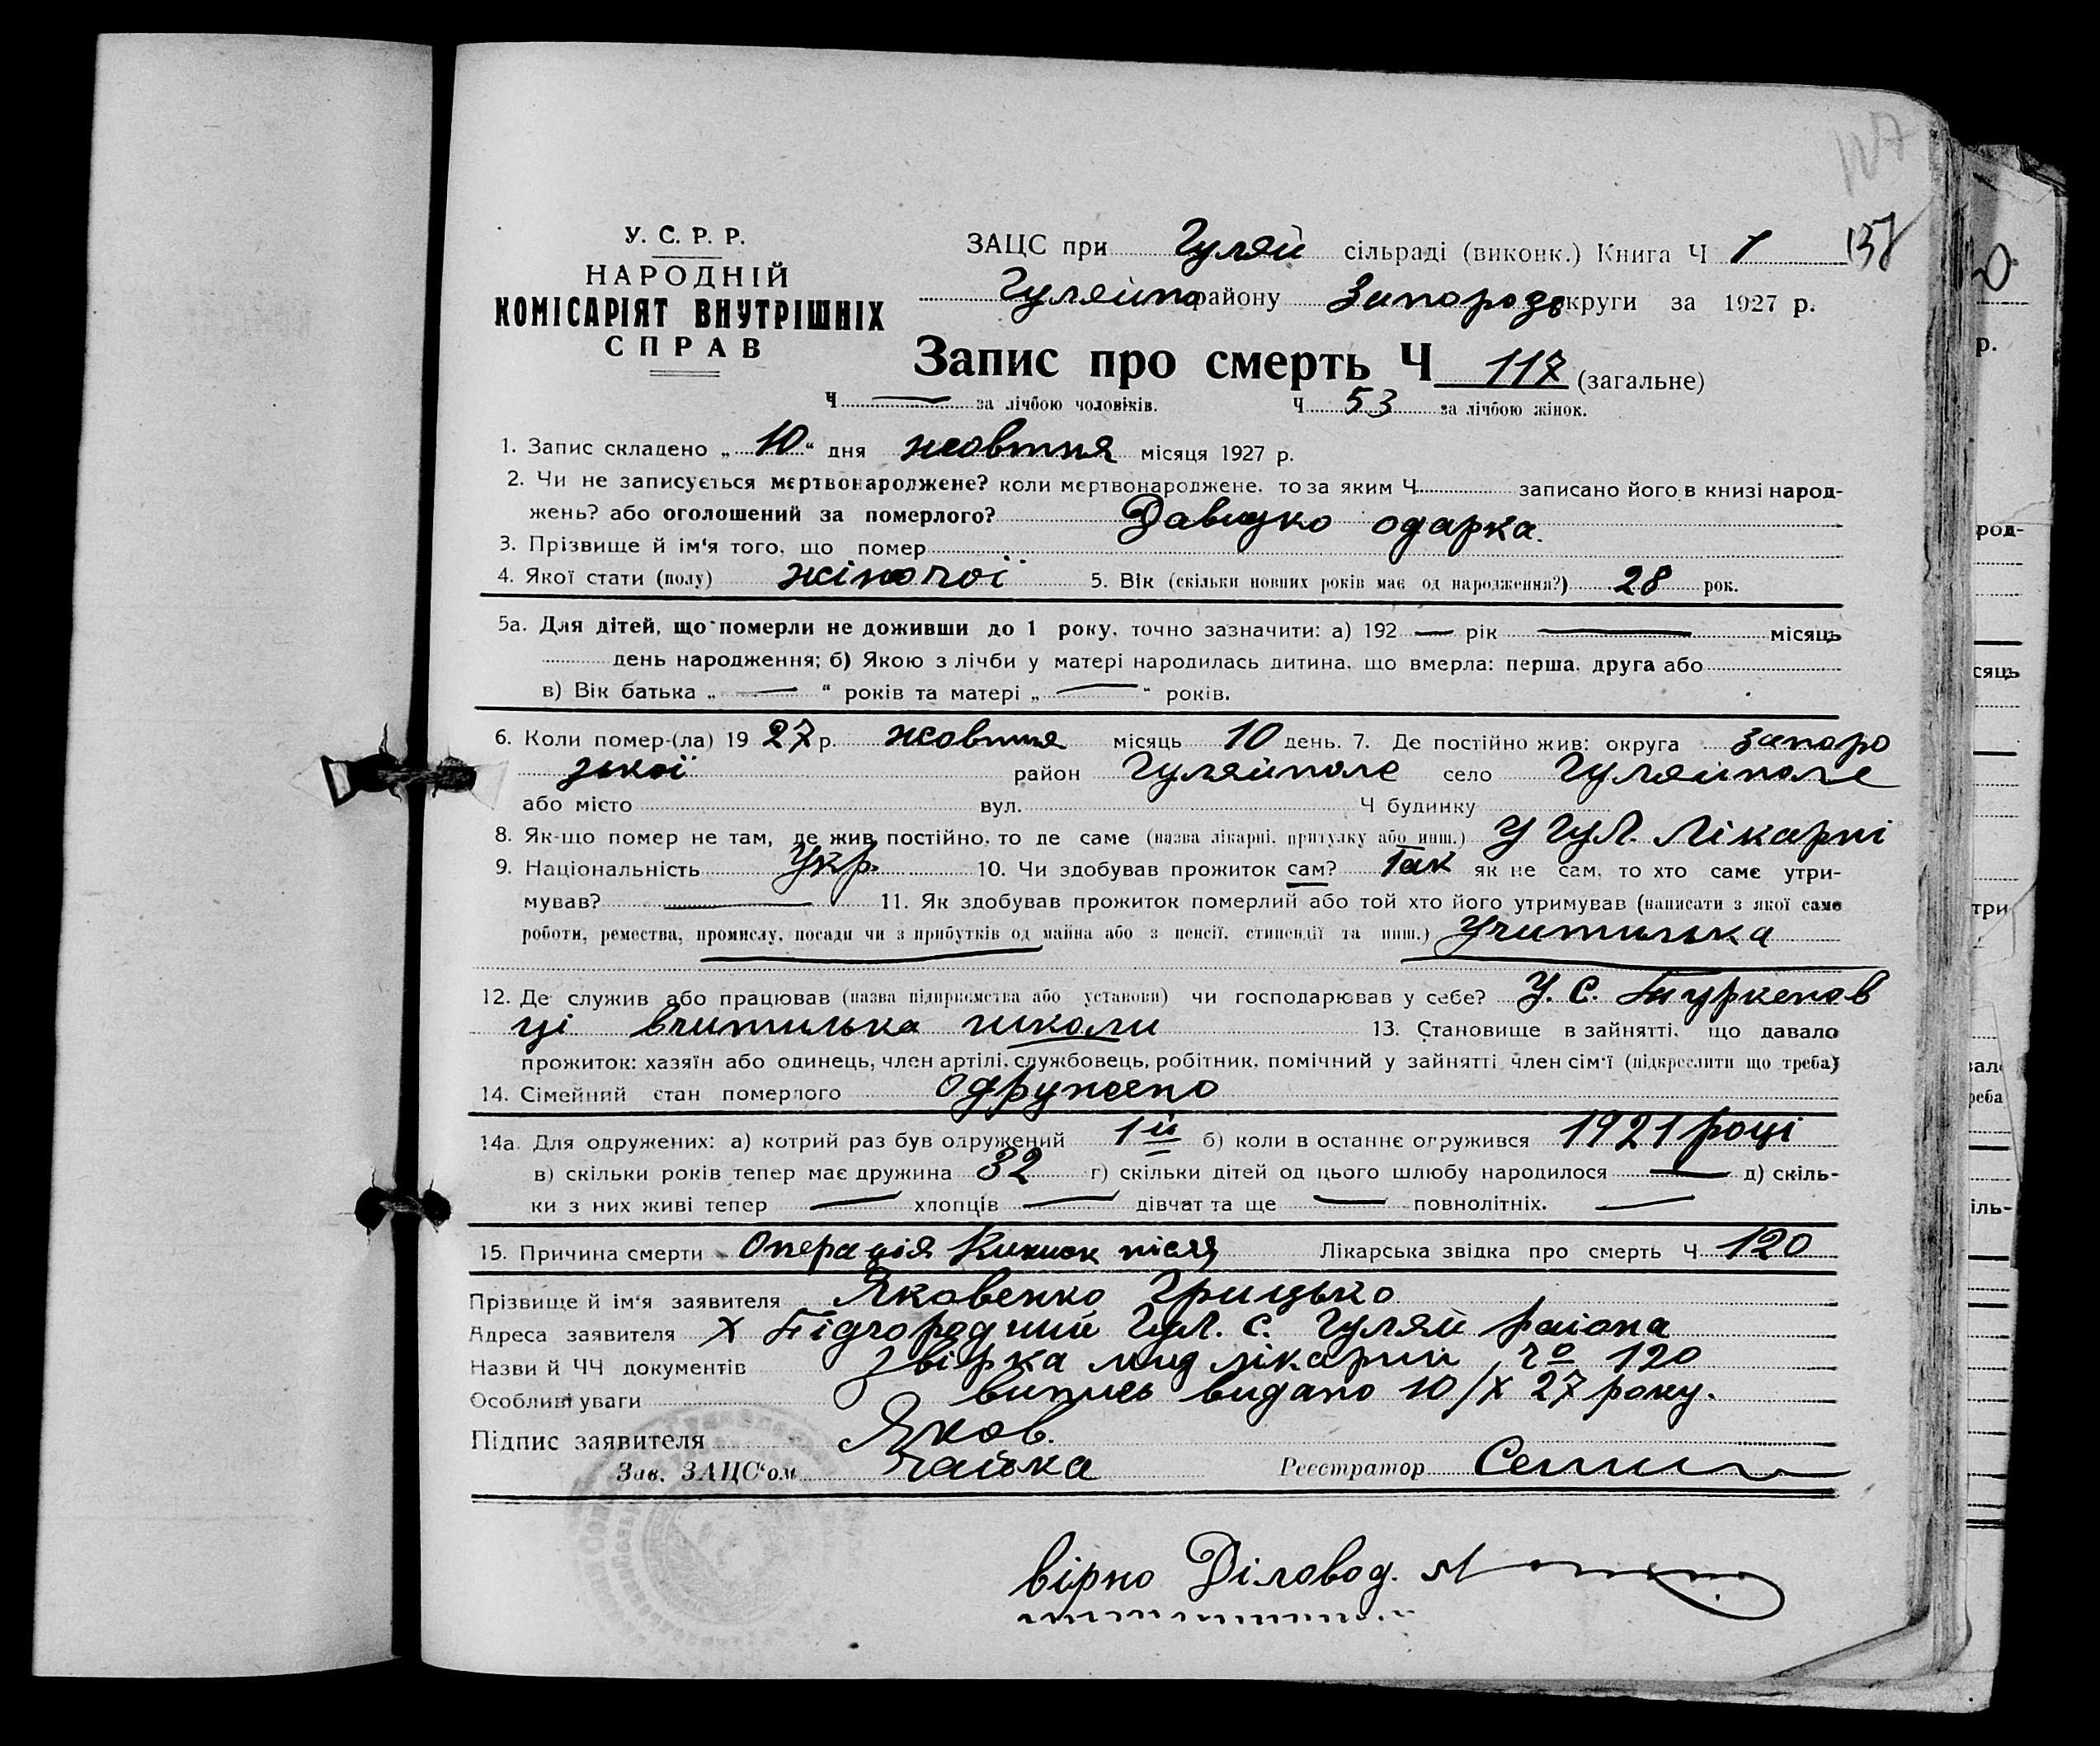 117
У. С. Р. Р.
НАРОДНІЙ
КОМІСАРІЯТ ВНУТРІШНІХ
СПРАВ
ЗАЦС при Гуляй сільраді (виконк.) Книга Ч 1
Гуляйпо району Запорозь округи за 1927 р.
Запис про смерть Ч 117 (загальне)
Ч — за лічбою чоловіків. Ч 53 за лічбою жінок.
1. Запис складено „ 10 “ дня жовтня місяця 1927 р.
2. Чи не записується мертвонароджене? коли мертвонароджене, то за яким Ч записано його в книзі народ-
жень? або оголошений за померлого?
Давидко Одарка.
3. Прізвище й ім'я того, що помер
4. Якої стати (полу) жіночої 5. Вік (скільки повних років має од народження?) 28 рок.
5а. Для дітей, що померли не доживши до 1 року, точно зазначити: а) 192 — рік — місяць
день народження; б) Якою з лічби у матері народилась дитина, що вмерла: перша, друга або
в) Вік батька „ — “ років та матері „ — “ років.
6. Коли помер-(ла) 1927 р. жовтня місяць 10 день. 7. Де постійно жив: округа Запоро
зької район Гуляйполе село Гуляйполе
або місто вул. Ч будинку
8. Як-що помер не там, де жив постійно, то де саме (назва лікарні, притулку або инш.) У Гул. Лікарні
9. Національність Укр. 10. Чи здобував прожиток сам? Так як не сам, то хто саме утри-
мував? — 11. Як здобував прожиток померлий або той хто його утримував (написати з якої саме
роботи, ремества, промислу, посади чи з прибутків од майна або з пенсії, стипендії та инш.) Учителька
12. Де служив або працював (назва підприємства або установи) чи господарював у себе? У. С. Туркенов
ці вчителька школи 13. Становище в зайнятті, що давало
прожиток: хазяїн або одинець, член артілі, службовець, робітник, помічний у зайнятті член сім'ї (підкреслити що треба)
14. Сімейний стан померлого Одружено
14а. Для одружених: а) котрий раз був одружений 1й б) коли в останнє огружився 1921 році
в) скільки років тепер має дружина 32 г) скільки дітей од цього шлюбу народилося — д) скіль-
ки з них живі тепер — хлопців — дівчат та ще — повнолітніх. —
15. Причина смерти Операція Кишок після Лікарська звідка про смерть Ч 120
Прізвище й ім'я заявителя Яковенко Грицько
Адреса заявителя Х Підгородний Гул. С. Гуляй раіона
Назви й ЧЧ документів лікарни 120
Особливі уваги випись видано 10/X 27 року.
Підпис заявителя Яков.
Зав. ЗАЦС'ом Чайка Реєстратор
вірно Діловод.